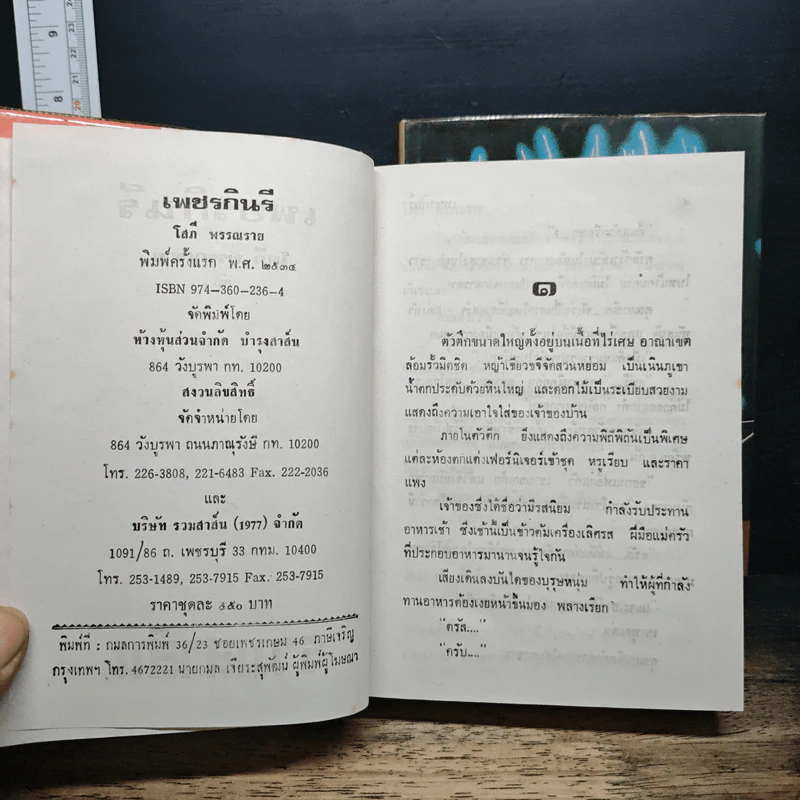 เพชรกินรี
โสภี พรรณราย
พิมพ์ครั้งแรก พ.ศ. ๒๕๓๔
ISBN 974-360-236-4
จัดพิมพ์โดย
ห้างหุ้นส่วนจำกัด บำรุงสาส์น
864 วังบูรพา กท. 10200
สงวนลิขสิทธิ์
จัดจำหน่ายโดย
864 วังบูรพา ถนนภาณุรังษี กท. 10200
โทร. 226-3808, 221-6483 Fax. 222-2036
และ
บริษัท รวมสาส์น (1977) จำกัด
1091/86 ถ. เพชรบุรี 33 กทม. 10400
โทร. 253-1489, 253-7915 Fax. 253-7915
ราคาชุดละ ๔๕๐ บาท
พิมพ์ที่ : กมลการพิมพ์ 36/23 ซอยเพชรเกษม 46 ภาษีเจริญ
กรุงเทพฯ โทร. 4672221 นายกมล เจียระสุพัฒน์ ผู้พิมพ์ผู้โฆษณา
๑
ตัวตึกขนาดใหญ่ตั้งอยู่บนเนื้อที่ไร่เศษ อาณาเขต
ล้อมรั้วมิดชิด หญ้าเขียวขจีจัดสวนหย่อม เป็นเนินภูเขา
น้ำตกประดับด้วยหินใหญ่ และดอกไม้เป็นระเบียบสวยงาม
แสดงถึงความเอาใจใส่ของเจ้าของบ้าน
ภายในตัวตึก ยิ่งแสดงถึงความพิถีพิถันเป็นพิเศษ
แต่ละห้องตกแต่งเฟอร์นิเจอร์เข้าชุด หรูเรียบ และราคา
แพง
เจ้าของซึ่งได้ชื่อว่ามีรสนิยม กำลังรับประทาน
อาหารเช้า ซึ่งเช้านี้เป็นข้าวต้มเครื่องเลิศรส ฝีมือแม่ครัว
ที่ประกอบอาหารมานานจนรู้ใจกัน
เสียงเดินลงบันไดของบุรุษหนุ่ม ทำให้ผู้ที่กำลัง
ทานอาหารต้องเงยหน้าขึ้นมอง พลางเรียก
“ตรัส....”
“ครับ....”